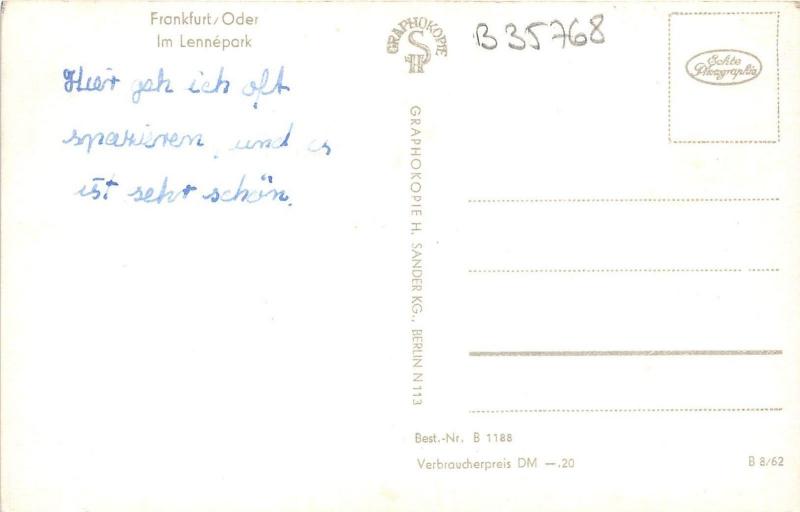 Frankfurt/Oder
Im Lennépark
Hier geh ich oft
spazieren, und es
ist sehr schön.
GRAPHOKOPIE
H S
GRAPHOKOPIE H. SANDER KG., BERLIN N 113
B 35768
Echte
Photographie
Best.-Nr. B 1188
Verbraucherpreis DM —.20
B 8/62